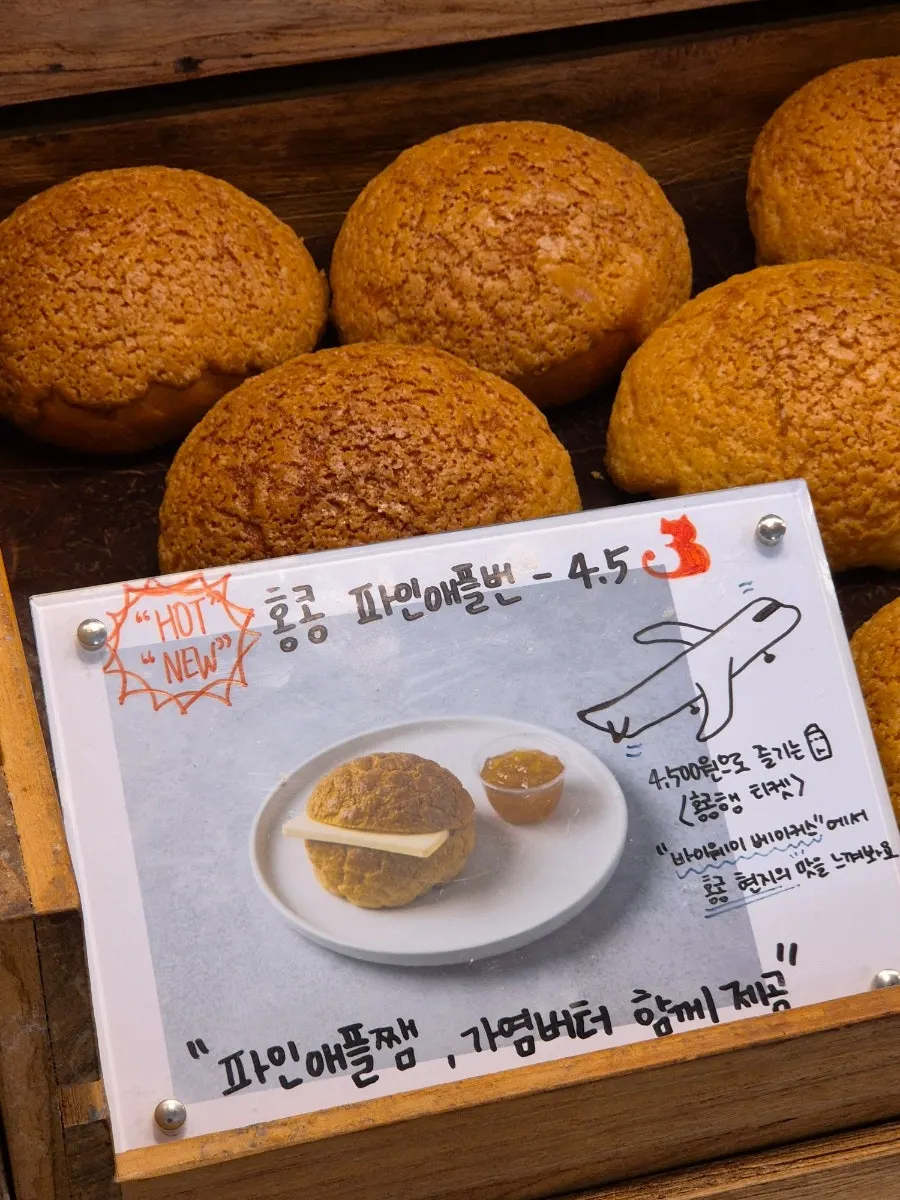 "HOT"
"NEW"
홍콩 파인애플번 - 4.5
4,500원으로 즐기는
<홍콩행 티켓>
"바이웨이 베이커스"에서
홍콩 현지의 맛을 느껴보세요
"파인애플쨈, 가염버터 함께 제공"